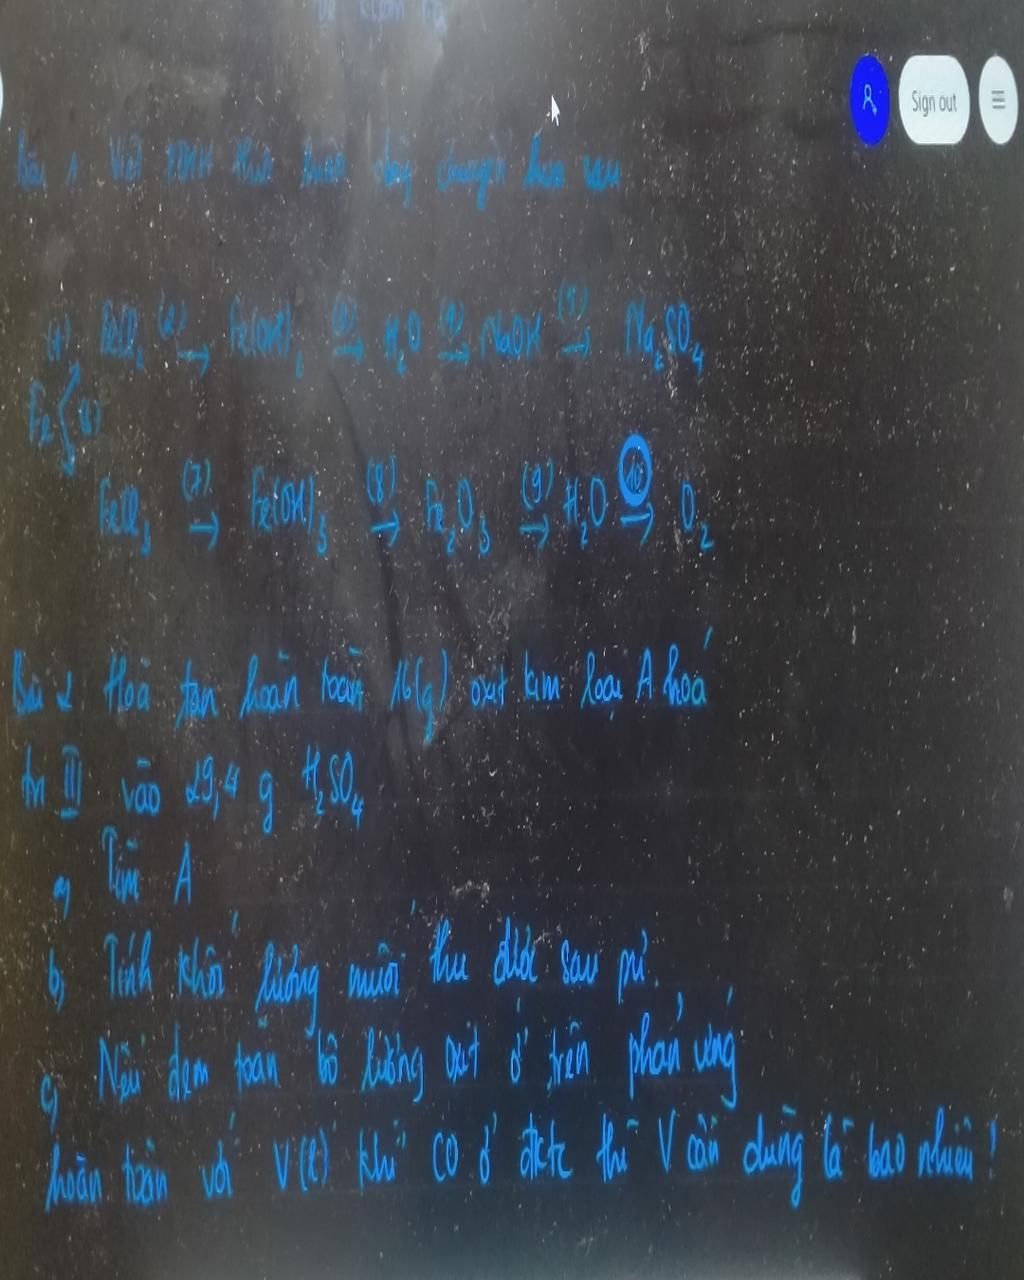 Sign out
Bài 1 Viết PTHH thực hiện dãy chuyển hoá sau
(1) FeCl₂ (2)→ Fe(OH)₂ (3)→ H₂O (4)→ NaOH (5)→ Na₂SO₄
Fe { (6)
FeCl₃ (7)→ Fe(OH)₃ (8)→ Fe₂O₃ (9)→ H₂O (10)→ O₂
Bài 2 Hoà tan hoàn toàn 16(g) oxit kim loại A hoá
trị III vào 29,4 g H₂SO₄
a, Tìm A
b, Tính khối lượng muối thu được sau pứ
c, Nếu đem toàn bộ lượng oxit ở trên phản ứng
hoàn toàn với V(l) khí CO ở đktc thì V cần dùng là bao nhiêu!